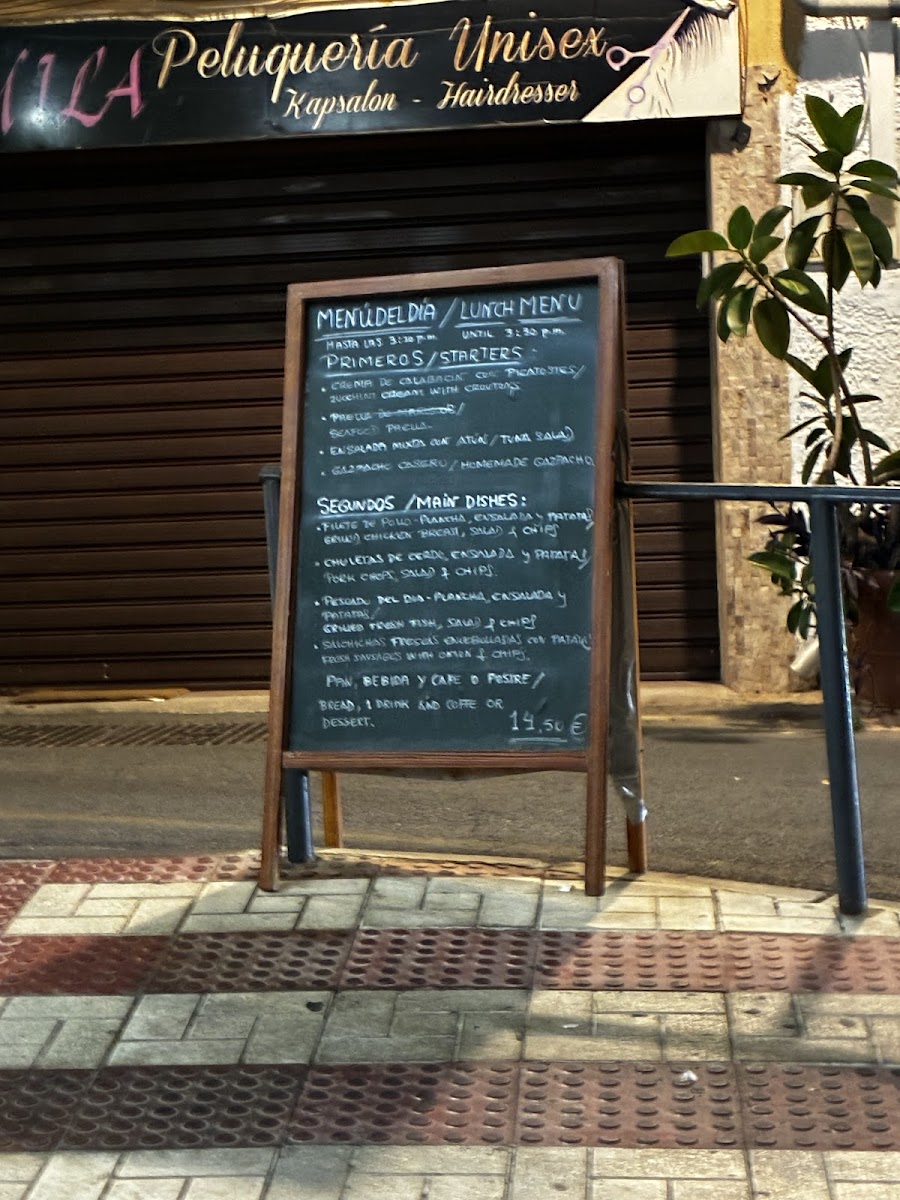 MILA Peluquería Unisex
Kapsalon - Hairdresser
MENÚ DEL DÍA / LUNCH MENU
HASTA LAS 3:30 p.m. UNTIL 3:30 p.m.
PRIMEROS/STARTERS:
• CREMA DE CALABACIN CON PICATOSTES/
ZUCCHINI CREAM WITH CROUTONS
• PAELLA DE MARISCOS/
SEAFOOD PAELLA.
• ENSALADA MIXTA CON ATÚN/TUNA SALAD
• GAZPACHO CASERO/HOMEMADE GAZPACHO.
SEGUNDOS/MAIN DISHES:
• FILETE DE POLLO-PLANCHA, ENSALADA Y PATATAS/
GRILLED CHICKEN BREAST, SALAD & CHIPS
• CHULETAS DE CERDO, ENSALADA Y PATATAS/
PORK CHOPS, SALAD & CHIPS.
• PESCADO DEL DIA-PLANCHA, ENSALADA Y
PATATAS/
GRILLED FRESH FISH, SALAD & CHIPS
• SALCHICHAS FRESCAS ENCEBOLLADAS CON PATATAS/
FRESH SAUSAGES WITH ONION & CHIPS.
PAN, BEBIDA Y CAFE O POSTRE/
BREAD, 1 DRINK AND COFFE OR
DESSERT.
14,50 €